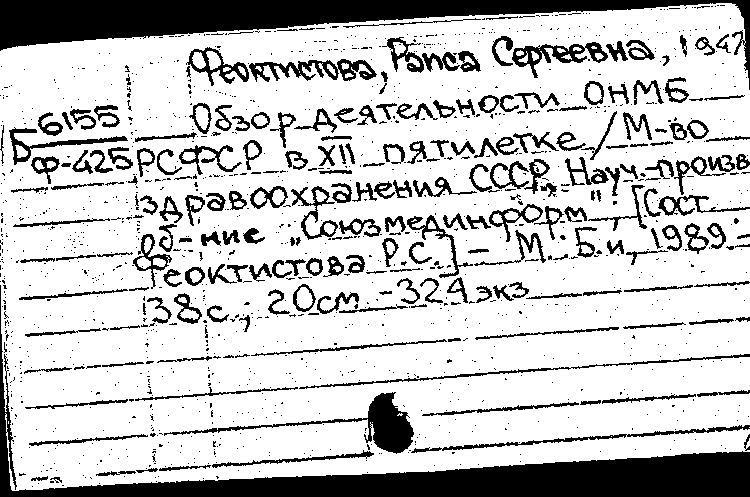 Феоктистова, Раиса Сергеевна, 1947
Б 6155
Ф-425
Обзор деятельности ОНМБ
РСФСР в XII пятилетке / М-во
здравоохранения СССР, Науч.-произв
об-ние „Союзмединформ"; [Сост.
Феоктистова Р.С.] - М.: Б.и, 1989. -
38с.; 20см - 324 экз